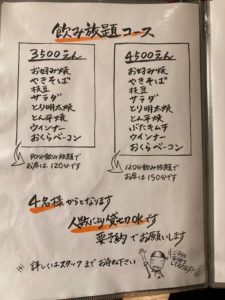 飲み放題コース
3500えん
お好み焼
やきそば
枝豆
サラダ
とり明太焼
とん平焼
ウインナー
おくらベーコン
90分飲み放題で
お席は120分です
4500えん
お好み焼
やきそば
枝豆
サラダ
とり明太焼
ぶたキムチ
ウインナー
おくらベーコン
120分飲み放題で
お席は150分です
4名様からとなります
人数により貸切OKです
要予約でお願いします
※詳しくはスタッフまでお尋ね下さい